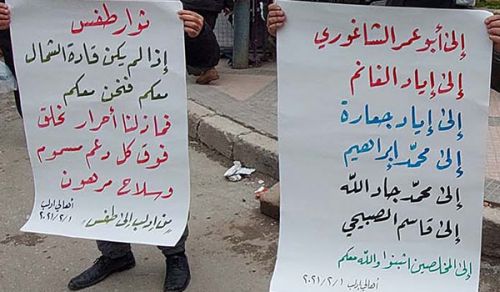 إلى أبو عمر الشاغوري
إلى إياد الغانم
إلى إياد جعارة
إلى محمد إبراهيم
إلى محمد جاد الله
إلى قاسم الصبيحي
إلى المخلصين اثبتوا والله معكم
أهالي إدلب ٢٠٢١/٢/١
ثوار طفس
إذا لم يكن قادة الشمال
معكم فنحن معكم
فمازلنا أحرار نحلق
فوق كل دعم مسموم
وسلاح مرهون
من إدلب إلى طفس
أهالي إدلب
٢٠٢١/٢/١